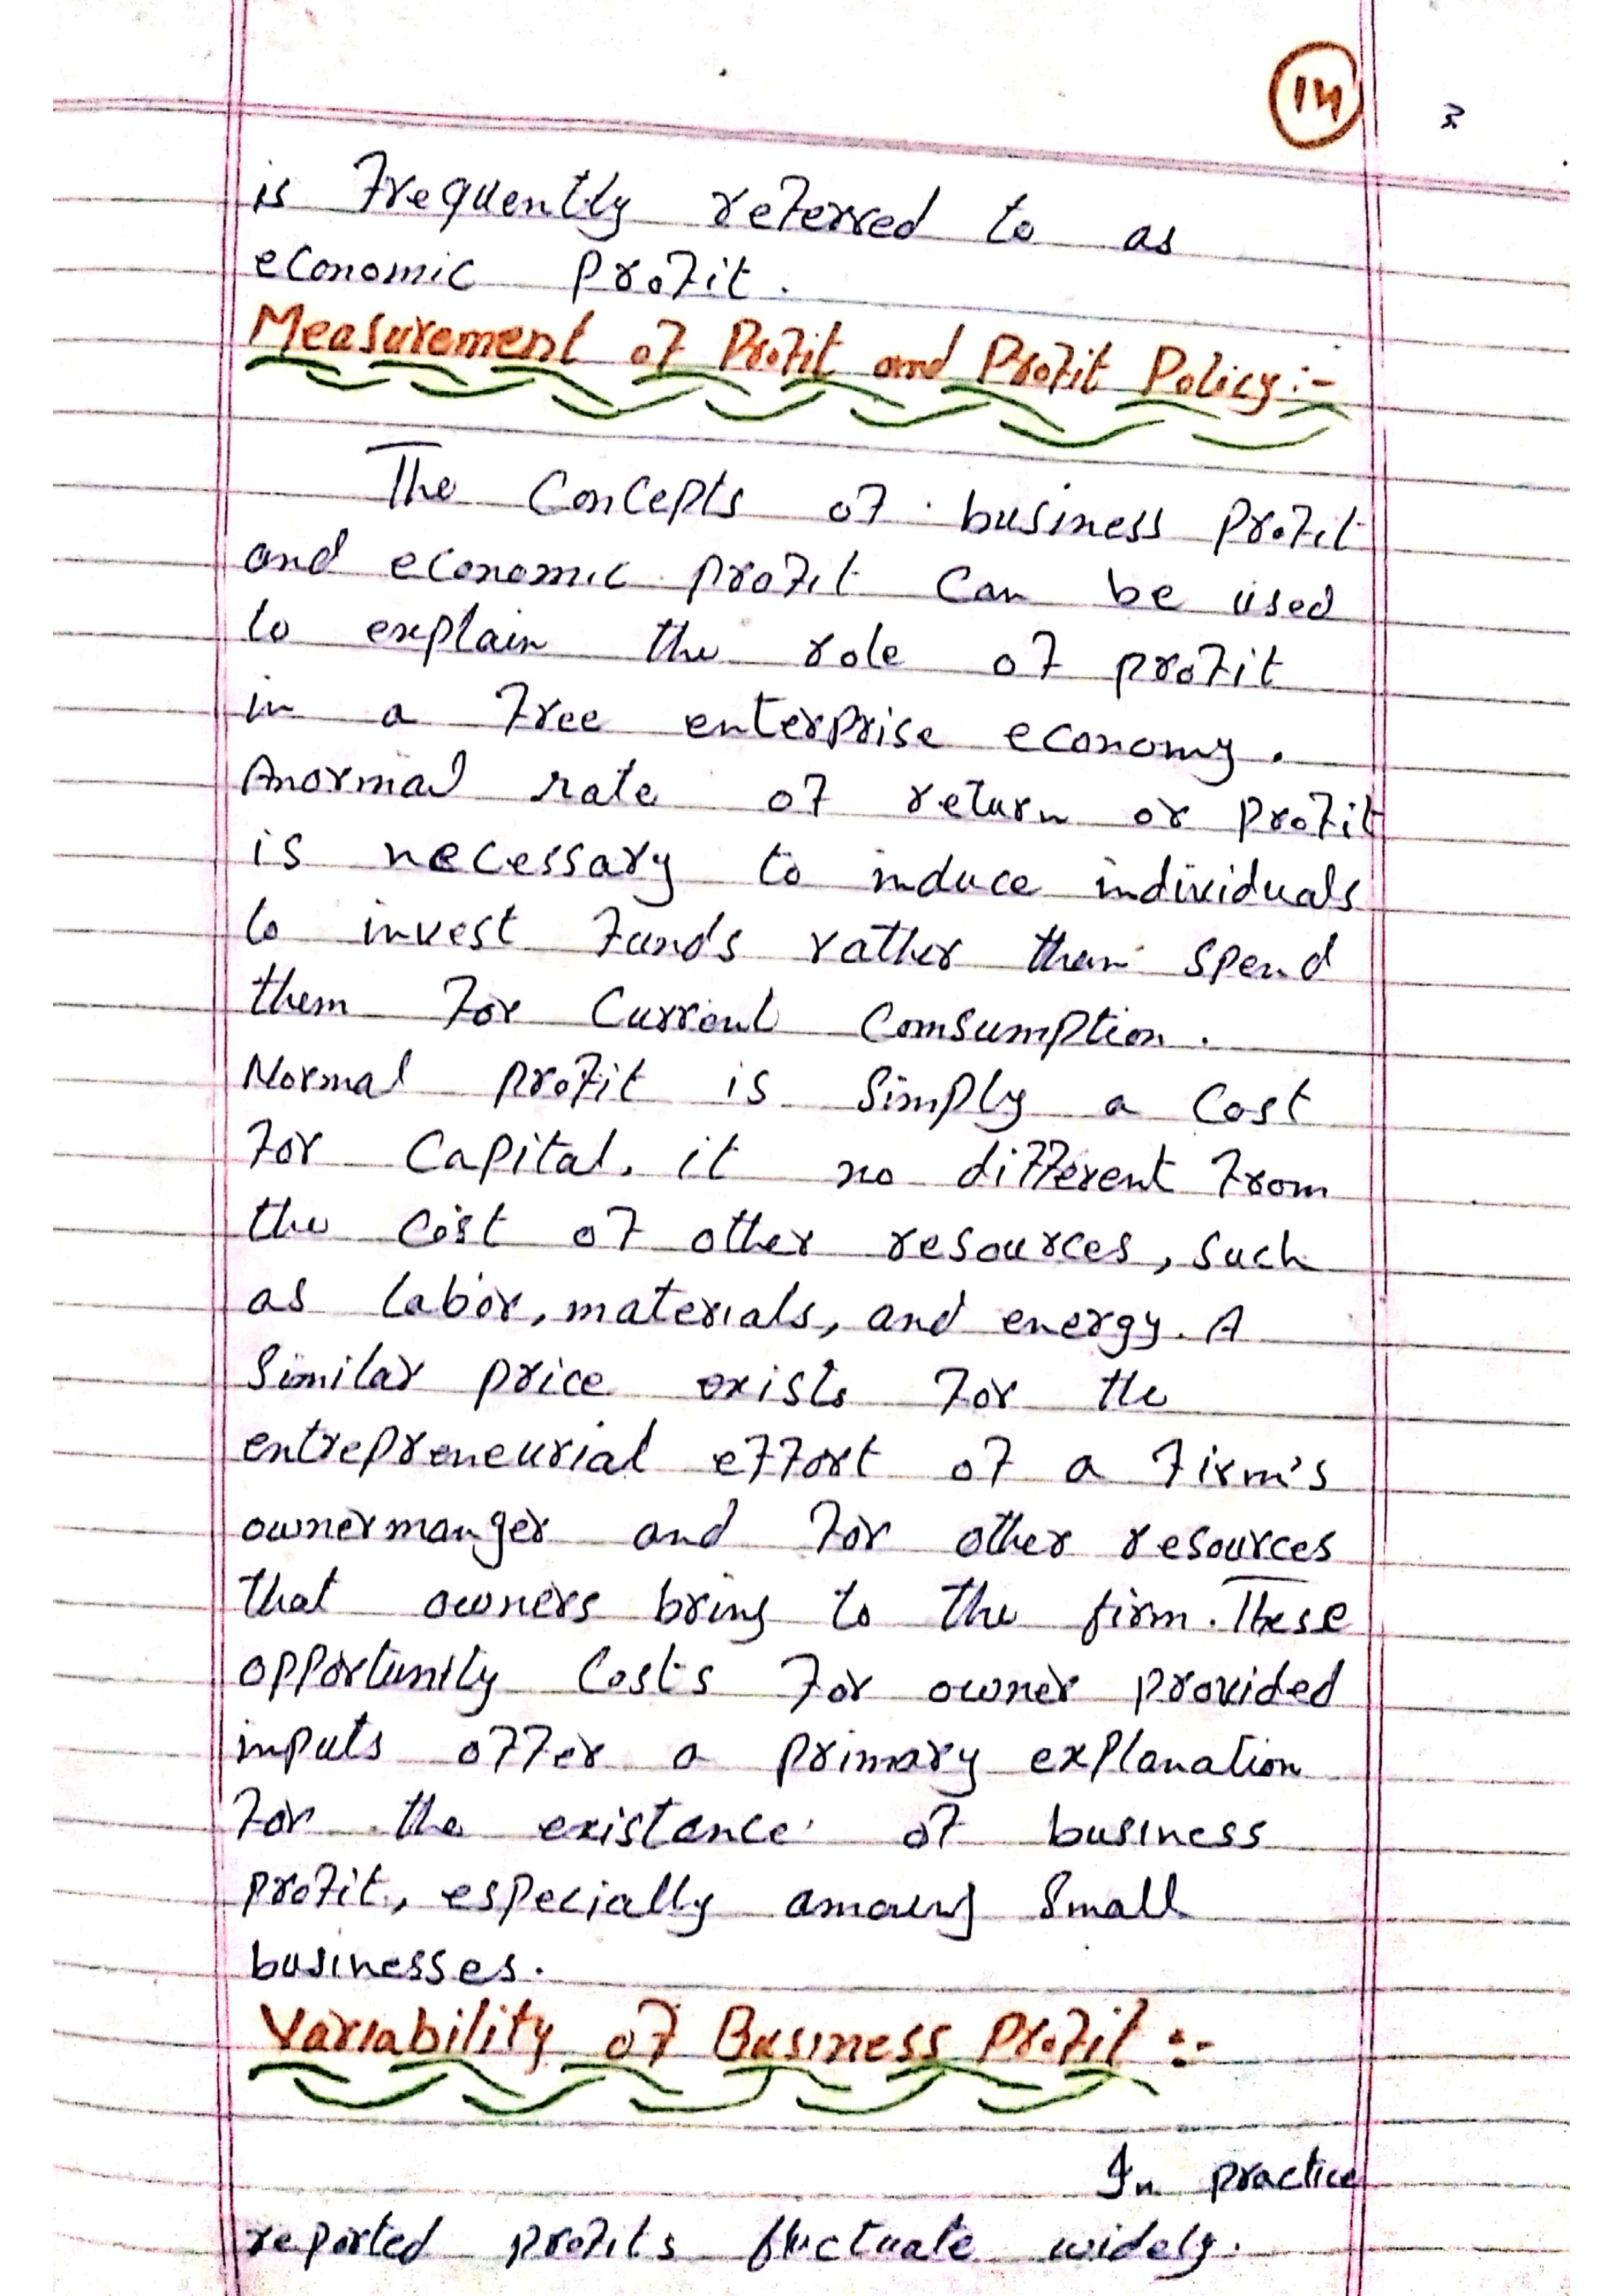 14
is frequently referred to as
economic profit.
Measurement of Profit and Profit Policy:-
The Concepts of business profit
and economic profit can be used
to explain the role of profit
in a free enterprise economy.
Anormal rate of return or profit
is necessary to induce individuals
to invest funds rather than spend
them for current comsumption.
Normal profit is simply a cost
for capital. it no different from
the cost of other resources, such
as labor, materials, and energy. A
similar price exists for the
entrepreneurial effort of a firm's
ownermanger and for other resources
that owners bring to the firm. These
opportunity costs for owner provided
inputs offer a primary explanation
for the existance of business
profit, especially among small
businesses.
Variability of Business Profit :-
In practice
reported profits fluctuate widely.